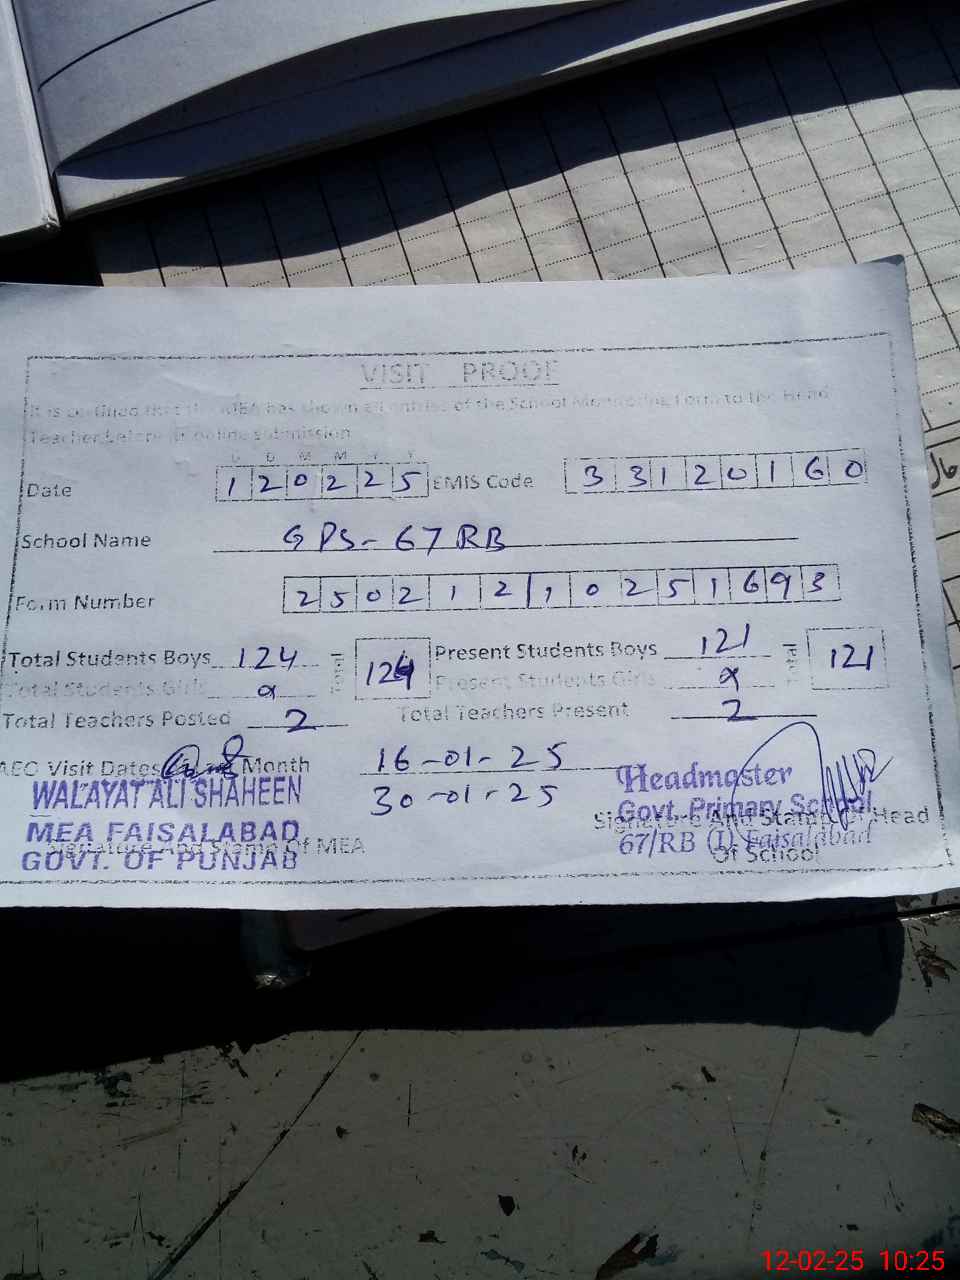 VISIT PROOF
It is certified that the MEA has shown all entries of the School Monitoring Form to the Head
Teacher before online submission
D D M M Y Y
Date 120225 EMIS Code 33120160
School Name GPS-67 RB
Form Number 25021210251693
Total Students Boys 124 Total 124 Present Students Boys 121 Total 121
Total Students Girls Present Students Girls
Total Teachers Posted 2 Total Teachers Present 2
AEO Visit Dates Month 16-01-25
30-01-25
WALAYAT ALI SHAHEEN
MEA FAISALABAD
GOVT. OF PUNJAB
Signature And Stamp Of MEA
Headmaster
Govt. Primary School
67/RB (I) Faisalabad
Signature And Stamp Of Head
Of School
12-02-25 10:25